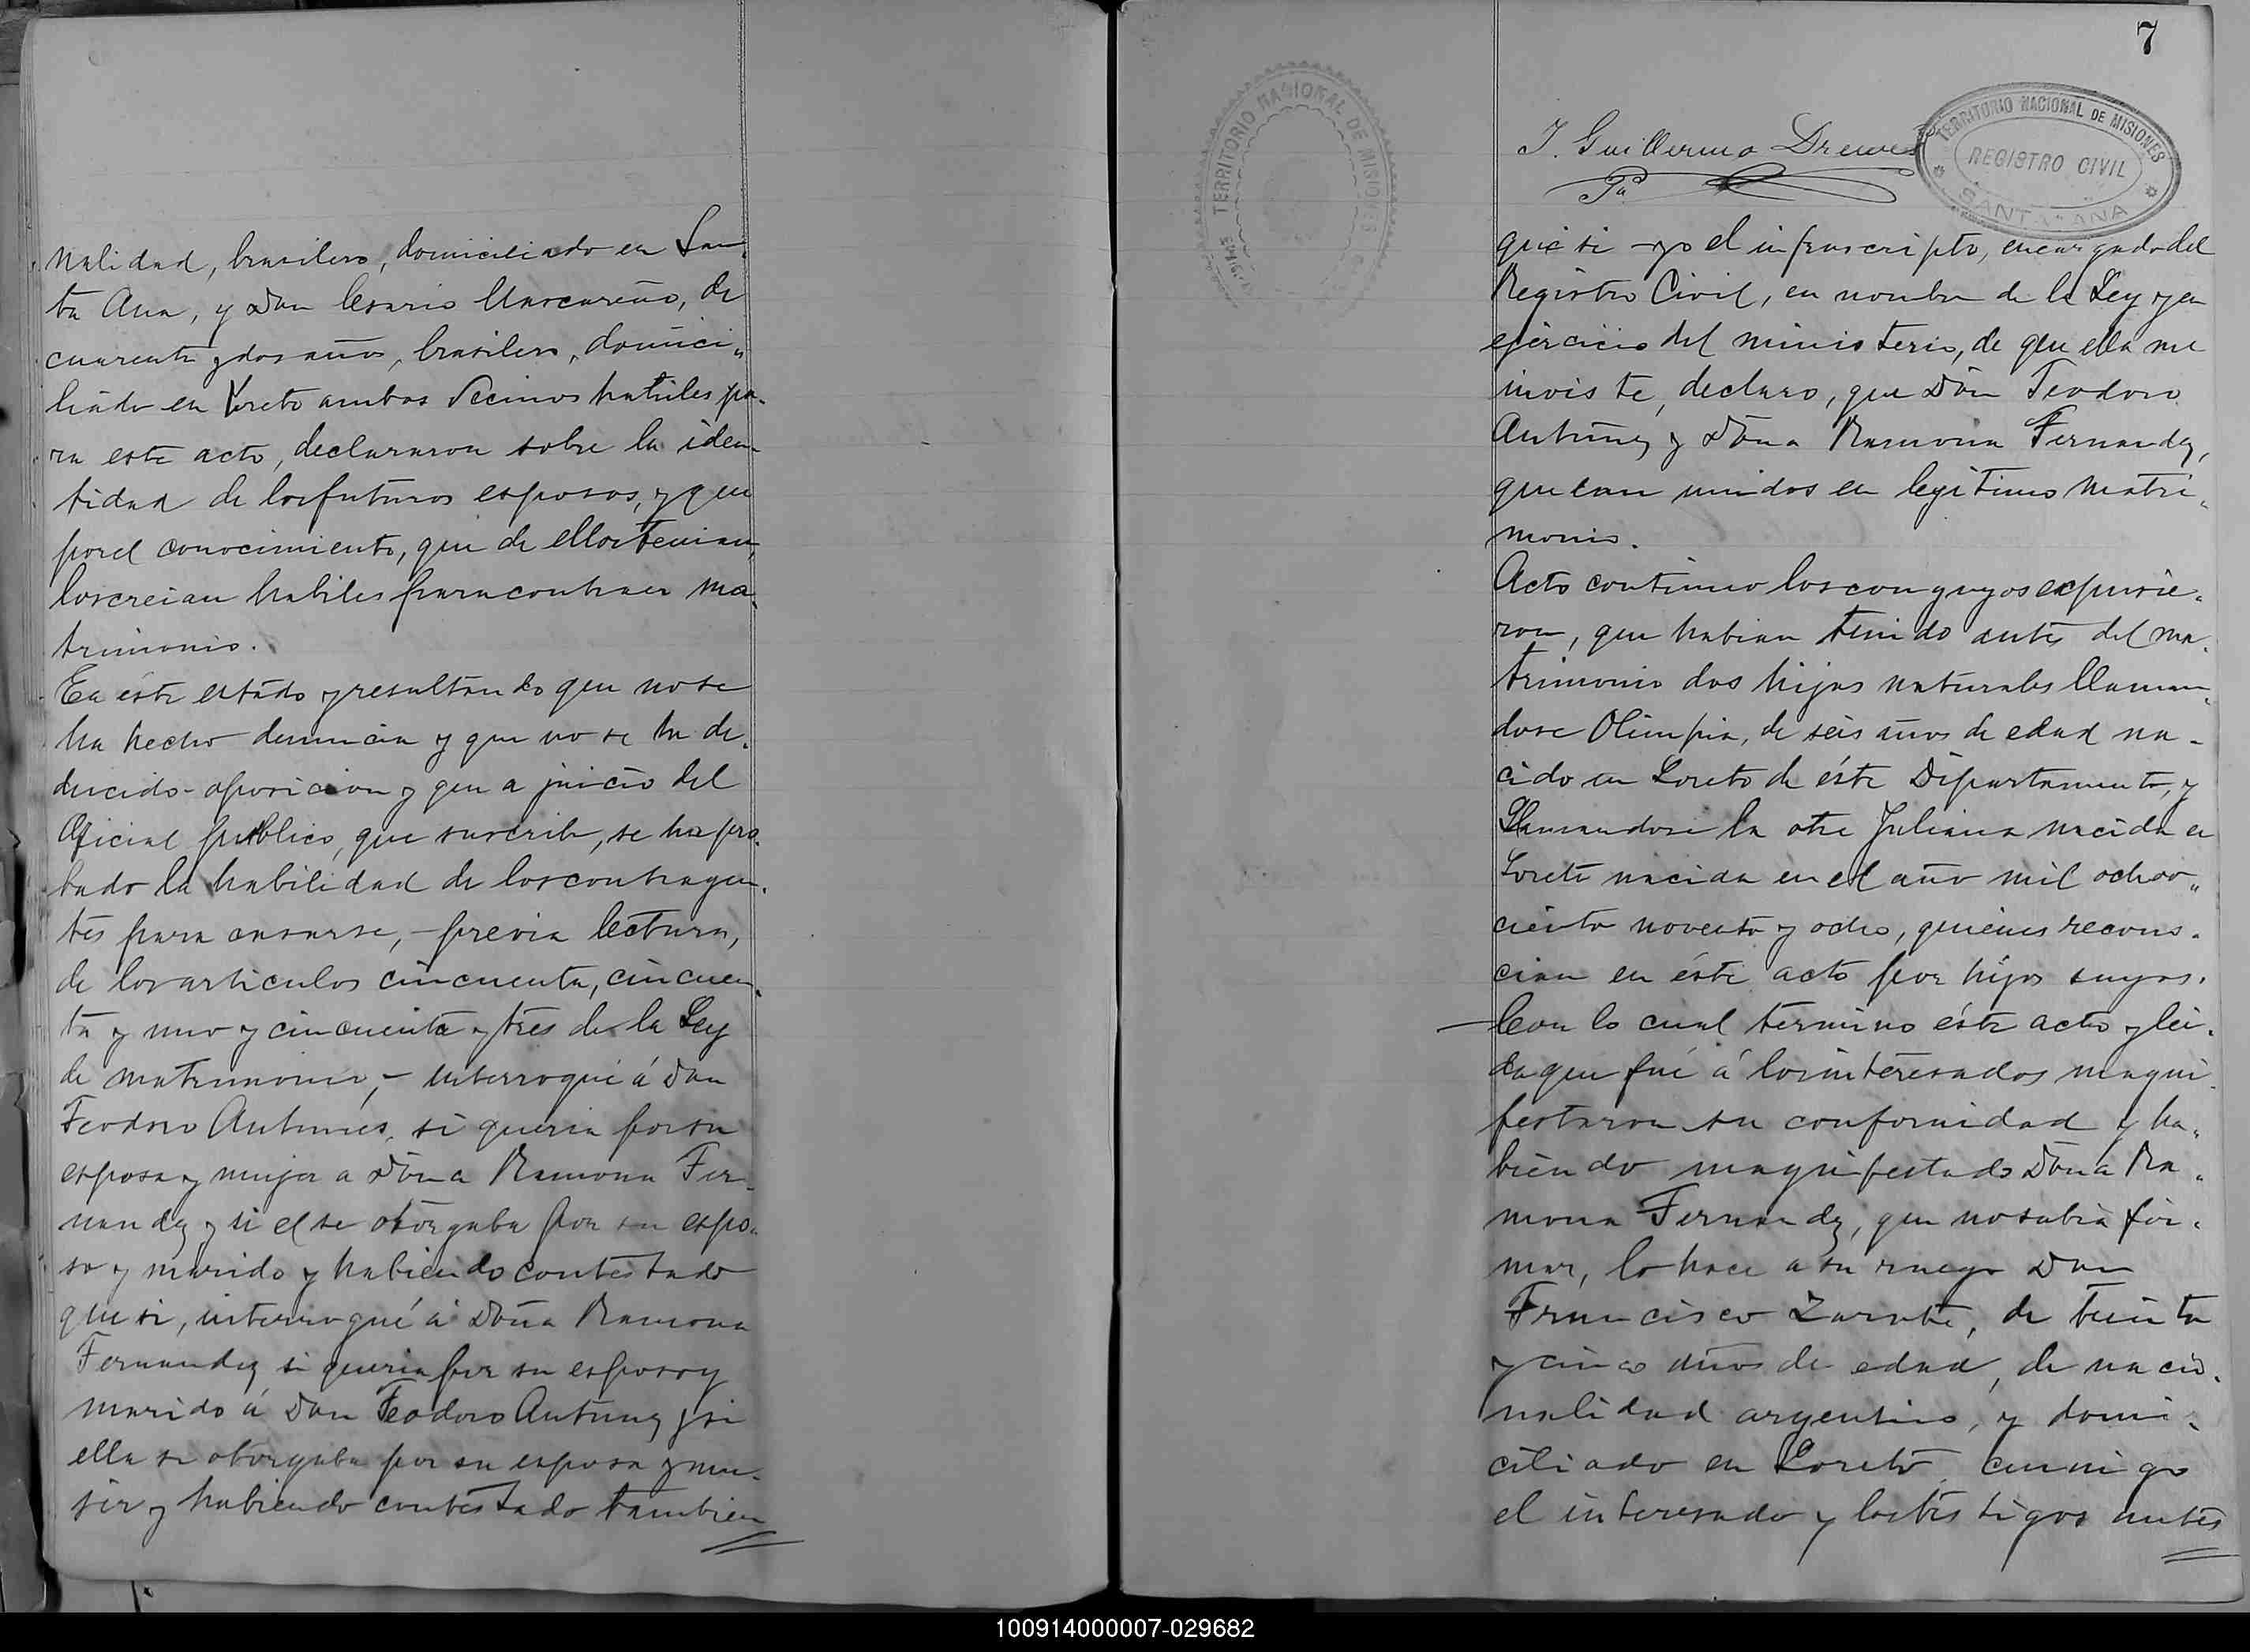 nalidad, brasilero, domiciliado en San
ta Ana, y Don Cesario Mascareño, de
cuarenta y dos años, brasilero, domici„
liado en Loreto ambos vecinos habiles pa-
ra este acto, declararon sobre la iden-
tidad de los futuros esposos, y que
por el conocimiento, que de ellos tenian,
los creian habiles para contraer ma-
trimonio.
En éste estado y resultando que no se
ha hecho denuncia y que no se ha de-
ducido-oposicion y que a juicio del
Oficial publico, que suscribe, se ha pro-
bado la habilidad de los contrayen-
tes para casarse,-previa lectura,
de los articulos cincuenta, cincuen-
ta y uno y cincuenta y tres de la Ley
de matrimonio,- interroqué á Don
Teodoro Antunes, si queria por su
esposa y mujer a Doña Ramona Fer-
nandez y si el se otorgaba por su espo-
so y marido y habiendo contestado
que si, interrogué á Doña Ramona
Fernandez si queria por su esposo y
marido á Don Teodoro Antunez y si
ella se otorgaba por su esposa y mu-
jer y habiendo contestado tambien
7
TERRITORIO NACIONAL DE MISIONES
J. Guillermo Drewes
TERRITORIO NACIONAL DE MISIONES
REGISTRO CIVIL
SANTA ANA
que si -yo el infrascripto, encargado del
Registro Civil, en nombre de la Ley y en
ejercicio del ministerio, de que ella me
inviste, declaro, que Don Teodoro
Antunez y Doña Ramona Fernandez,
quedan unidos en legitimo matri-
monio.
Acto continuo los conyuyos expusie-
ron, que habian tenido antes del ma-
trimonio dos hijos naturales llaman-
dose Olimpia, de seis años de edad na-
cido en Loreto de éste Departamento, y
Llamandose la otra Juliana nacida en
Loreto nacida en el año mil ochoo„
ciento noventa y ocho, quienes recono-
cian en éste acto por hijos suyos.
-Con lo cual termino éste acto y lei-
da que fué á los interesados magni-
festaron su conformidad y ha-
biendo magnifestado Doña Ra-
mona Fernandez, que no sabia fir-
mar, lo hace a su ruego Don
Francisco Zarate, de treinta
y cinco años de edad, de nacio-
nalidad argentino, y domi-
ciliado en Loreto, conmigo
el interesado y los testigos antes
100914000007-029682